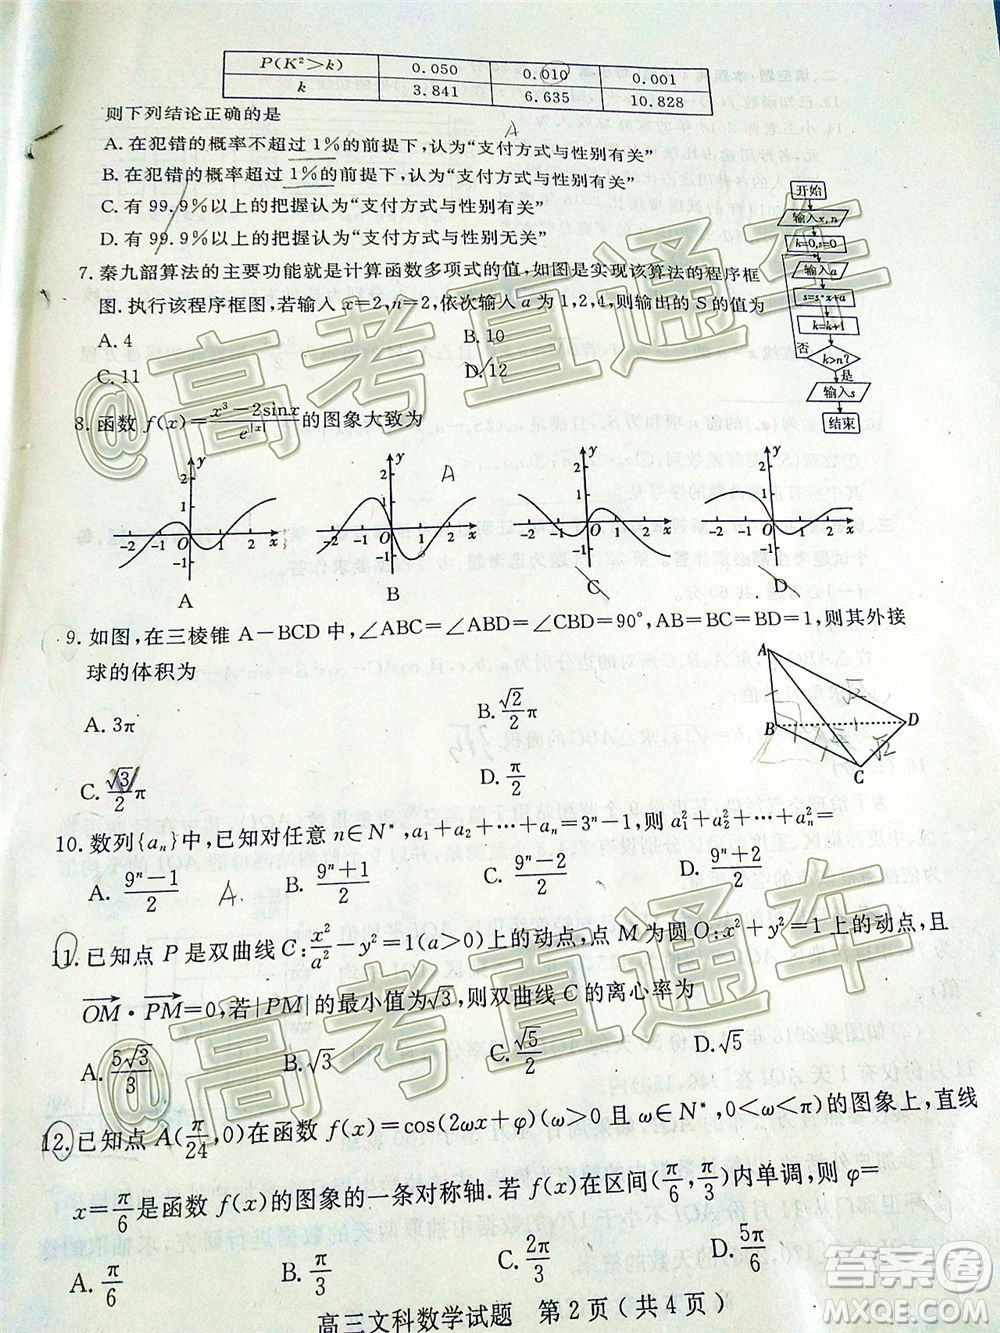 P(K²>k) 0.050 0.010 0.001
k 3.841 6.635 10.828
则下列结论正确的是
A
A. 在犯错的概率不超过1%的前提下,认为“支付方式与性别有关”
B. 在犯错的概率超过1%的前提下,认为“支付方式与性别有关”
C. 有99.9%以上的把握认为“支付方式与性别有关”
D. 有99.9%以上的把握认为“支付方式与性别无关”
7. 秦九韶算法的主要功能就是计算函数多项式的值,如图是实现该算法的程序框
图.执行该程序框图,若输入x=2,n=2,依次输入a为1,2,4,则输出的S的值为
A. 4
B. 10
C. 11
D. 12
开始
输入x,n
k=0,s=0
输入a
s=s·x+a
k=k+1
否
k>n?
是
输入s
结束
8. 函数f(x)=(x³-2sinx)/e^|x|的图象大致为
A
y 2 1 -2 -1 O 1 2 x -1
y 2 1 -2 -1 O 1 2 x -1
y 2 1 -2 -1 O 1 2 x -1
y 2 1 -2 -1 O 1 2 x -1
A
B
C
D
9. 如图,在三棱锥A-BCD中,∠ABC=∠ABD=∠CBD=90°,AB=BC=BD=1,则其外接
球的体积为
A. 3π
B. (√2/2)π
C. (√3/2)π
D. π/2
A
B
C
D
√2
√2
10. 数列{aₙ}中,已知对任意n∈N*,a₁+a₂+⋯+aₙ=3ⁿ-1,则a₁²+a₂²+⋯+aₙ²=
A. (9ⁿ-1)/2
A.
B. (9ⁿ+1)/2
C. (9ⁿ-2)/2
D. (9ⁿ+2)/2
11. 已知点P是双曲线C:x²/a²-y²=1(a>0)上的动点,点M为圆O:x²+y²=1上的动点,且
OM·PM=0,若|PM|的最小值为√3,则双曲线C的离心率为
A. 5√3/3
B. √3
C. √5/2
D. √5
12. 已知点A(π/24,0)在函数f(x)=cos(2ωx+φ)(ω>0且ω∈N*,0<ω<π)的图象上,直线
x=π/6是函数f(x)的图象的一条对称轴.若f(x)在区间(π/6,π/3)内单调,则φ=
A. π/6
B. π/3
C. 2π/3
D. 5π/6
高三文科数学试题 第2页(共4页)
@高考直通车
@高考直通车
答案圈
MXQE.COM